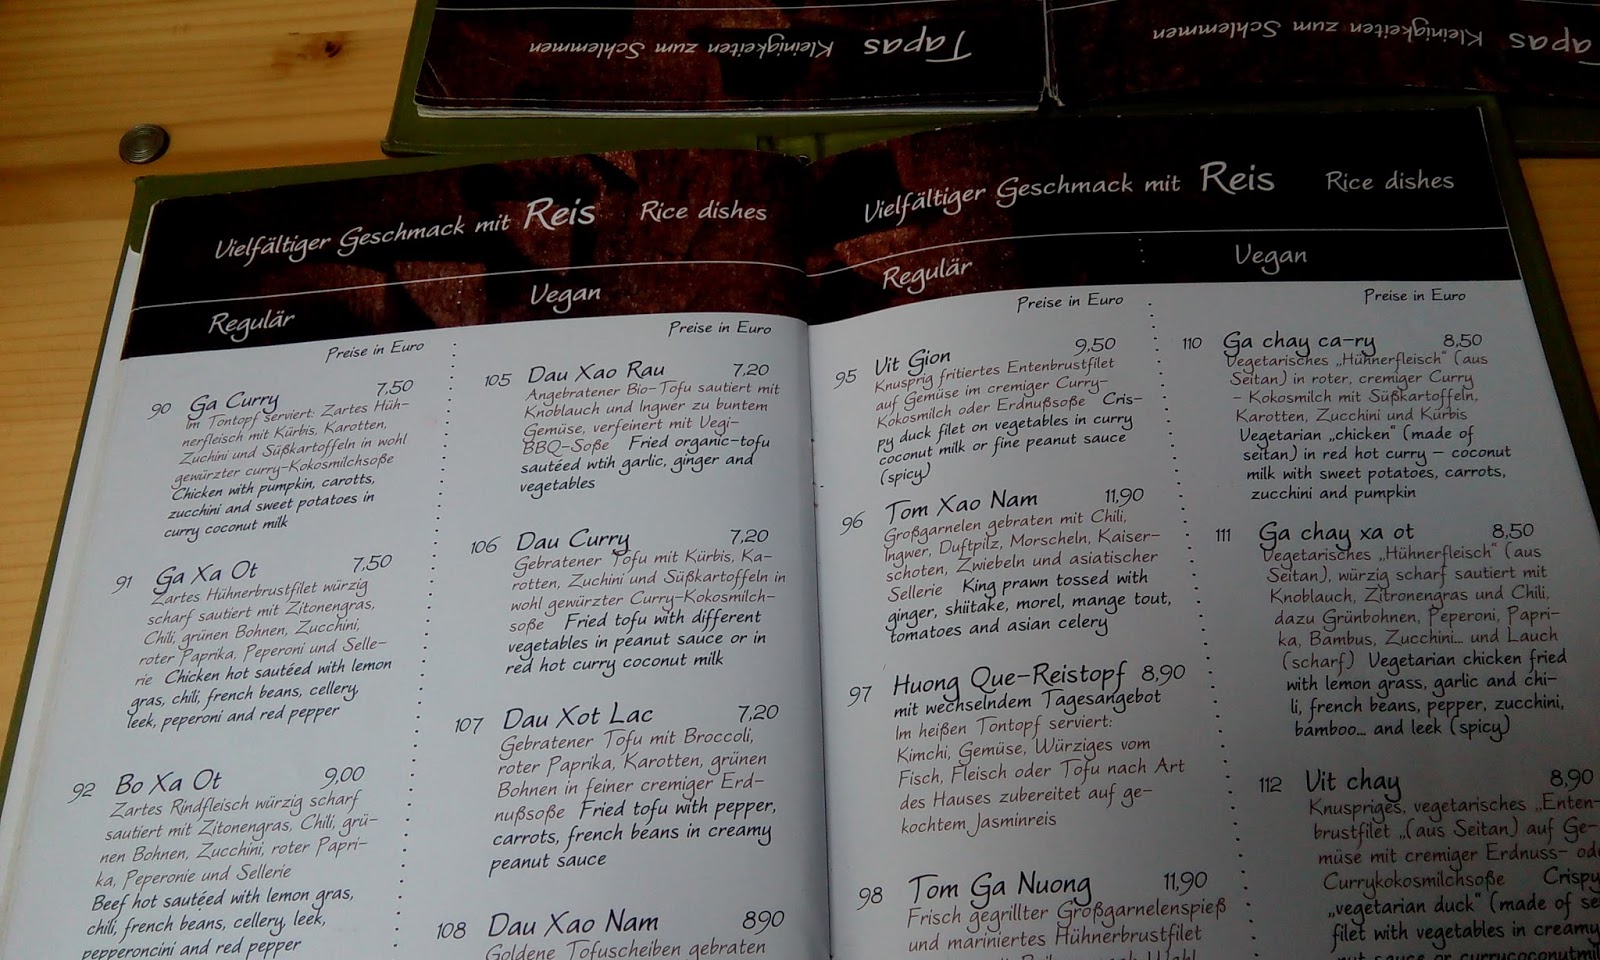 Tapas Kleinigkeiten zum Schlemmen
apas Kleinigkeiten zum Schlemmen
Vielfältiger Geschmack mit Reis Rice dishes
Regulär Vegan
Preise in Euro
90 Ga Curry 7,50
Im Tontopf serviert: Zartes Hüh-
nerfleisch mit Kürbis, Karotten,
Zuchini und Süßkartoffeln in wohl
gewürzter curry-Kokosmilchsoße
Chicken with pumpkin, carotts,
zucchini and sweet potatoes in
curry coconut milk
91 Ga Xa Ot 7,50
Zartes Hühnerbrustfilet würzig
scharf sautiert mit Zitonengras,
Chili, grünen Bohnen, Zucchini,
roter Paprika, Peperoni und Selle-
rie Chicken hot sautéed with lemon
gras, chili, french beans, cellery,
leek, peperoni and red pepper
92 Bo Xa Ot 9,00
Zartes Rindfleisch würzig scharf
sautiert mit Zitonengras, Chili, grü-
nen Bohnen, Zucchini, roter Papri-
ka, Peperonie und Sellerie
Beef hot sautéed with lemon gras,
chili, french beans, cellery, leek,
pepperoncini and red pepper
Preise in Euro
105 Dau Xao Rau 7,20
Angebratener Bio-Tofu sautiert mit
Knoblauch und Ingwer zu buntem
Gemüse, verfeinert mit Vegi-
BBQ-Soße Fried organic-tofu
sautéed wtih garlic, ginger and
vegetables
106 Dau Curry 7,20
Gebratener Tofu mit Kürbis, Ka-
rotten, Zuchini und Süßkartoffeln in
wohl gewürzter Curry-Kokosmilch-
soße Fried tofu with different
vegetables in peanut sauce or in
red hot curry coconut milk
107 Dau Xot Lac 7,20
Gebratener Tofu mit Broccoli,
roter Paprika, Karotten, grünen
Bohnen in feiner cremiger Erd-
nußsoße Fried tofu with pepper,
carrots, french beans in creamy
peanut sauce
108 Dau Xao Nam 890
Goldene Tofuscheiben gebraten
Vielfältiger Geschmack mit Reis Rice dishes
Regulär Vegan
Preise in Euro
95 Vit Gion 9,50
Knusprig fritiertes Entenbrustfilet
auf Gemüse im cremiger Curry-
Kokosmilch oder Erdnußsoße Cris-
py duck filet on vegetables in curry
coconut milk or fine peanut sauce
(spicy)
96 Tom Xao Nam 11,90
Großgarnelen gebraten mit Chili,
Ingwer, Duftpilz, Morscheln, Kaiser-
schoten, Zwiebeln und asiatischer
Sellerie King prawn tossed with
ginger, shiitake, morel, mange tout,
tomatoes and asian celery
97 Huong Que-Reistopf 8,90
mit wechselndem Tagesangebot
Im heißen Tontopf serviert:
Kimchi, Gemüse, Würziges vom
Fisch, Fleisch oder Tofu nach Art
des Hauses zubereitet auf ge-
kochtem Jasminreis
98 Tom Ga Nuong 11,90
Frisch gegrillter Großgarnelenspieß
und mariniertes Hühnerbrustfilet
Preise in Euro
110 Ga chay ca-ry 8,50
Vegetarisches „Hühnerfleisch“ (aus
Seitan) in roter, cremiger Curry
- Kokosmilch mit Süßkartoffeln,
Karotten, Zucchini und Kürbis
Vegetarian „chicken“ (made of
seitan) in red hot curry – coconut
milk with sweet potatoes, carrots,
zucchini and pumpkin
111 Ga chay xa ot 8,50
Vegetarisches „Hühnerfleisch“ (aus
Seitan), würzig scharf sautiert mit
Knoblauch, Zitronengras und Chili,
dazu Grünbohnen, Peperoni, Papri-
ka, Bambus, Zucchini... und Lauch
(scharf) Vegetarian chicken fried
with lemon grass, garlic and chi-
li, french beans, pepper, zucchini,
bamboo... and leek (spicy)
112 Vit chay 8,90
Knuspriges, vegetarisches „Enten-
brustfilet „(aus Seitan) auf Ge-
müse mit cremiger Erdnuss- od
Currykokosmilchsoße Crispy
„vegetarian duck“ (made of se
filet with vegetables in creamy